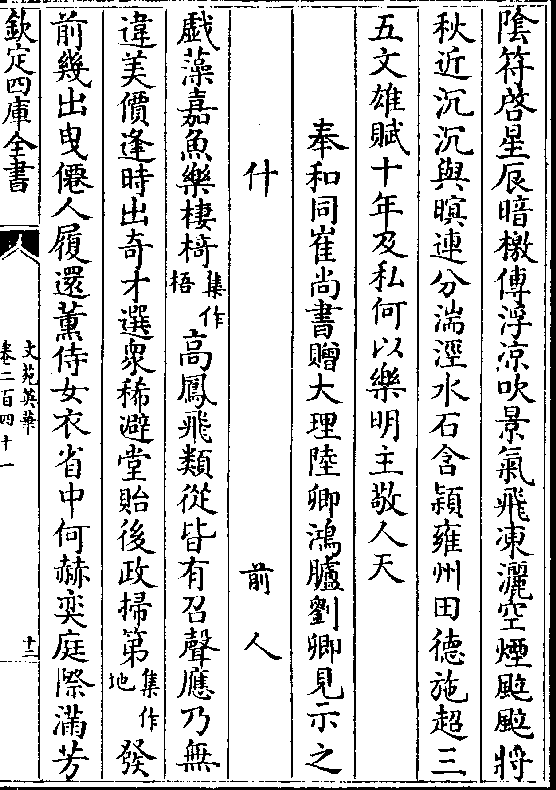 陰符啓星辰暗檄傳浮涼吹景氣飛凍灑空煙颭颭將
秋近沉沉與暝連分湍涇水石含頴雍州田德施超三
五文雄賦十年及私何以樂明主敬人天
奉和同崔尚書贈大理陸卿鴻臚劉卿見示之
什　前人
戯藻嘉魚樂棲梧集作梧高鳳飛類從皆有召聲應乃無
違美價逢時出奇才選衆稀避堂貽後政掃第集作地發
前幾出曳僊人履還薫侍女衣省中何赫奕庭際滿芳
欽定四庫全書
文苑英華
卷二百四十一
十二